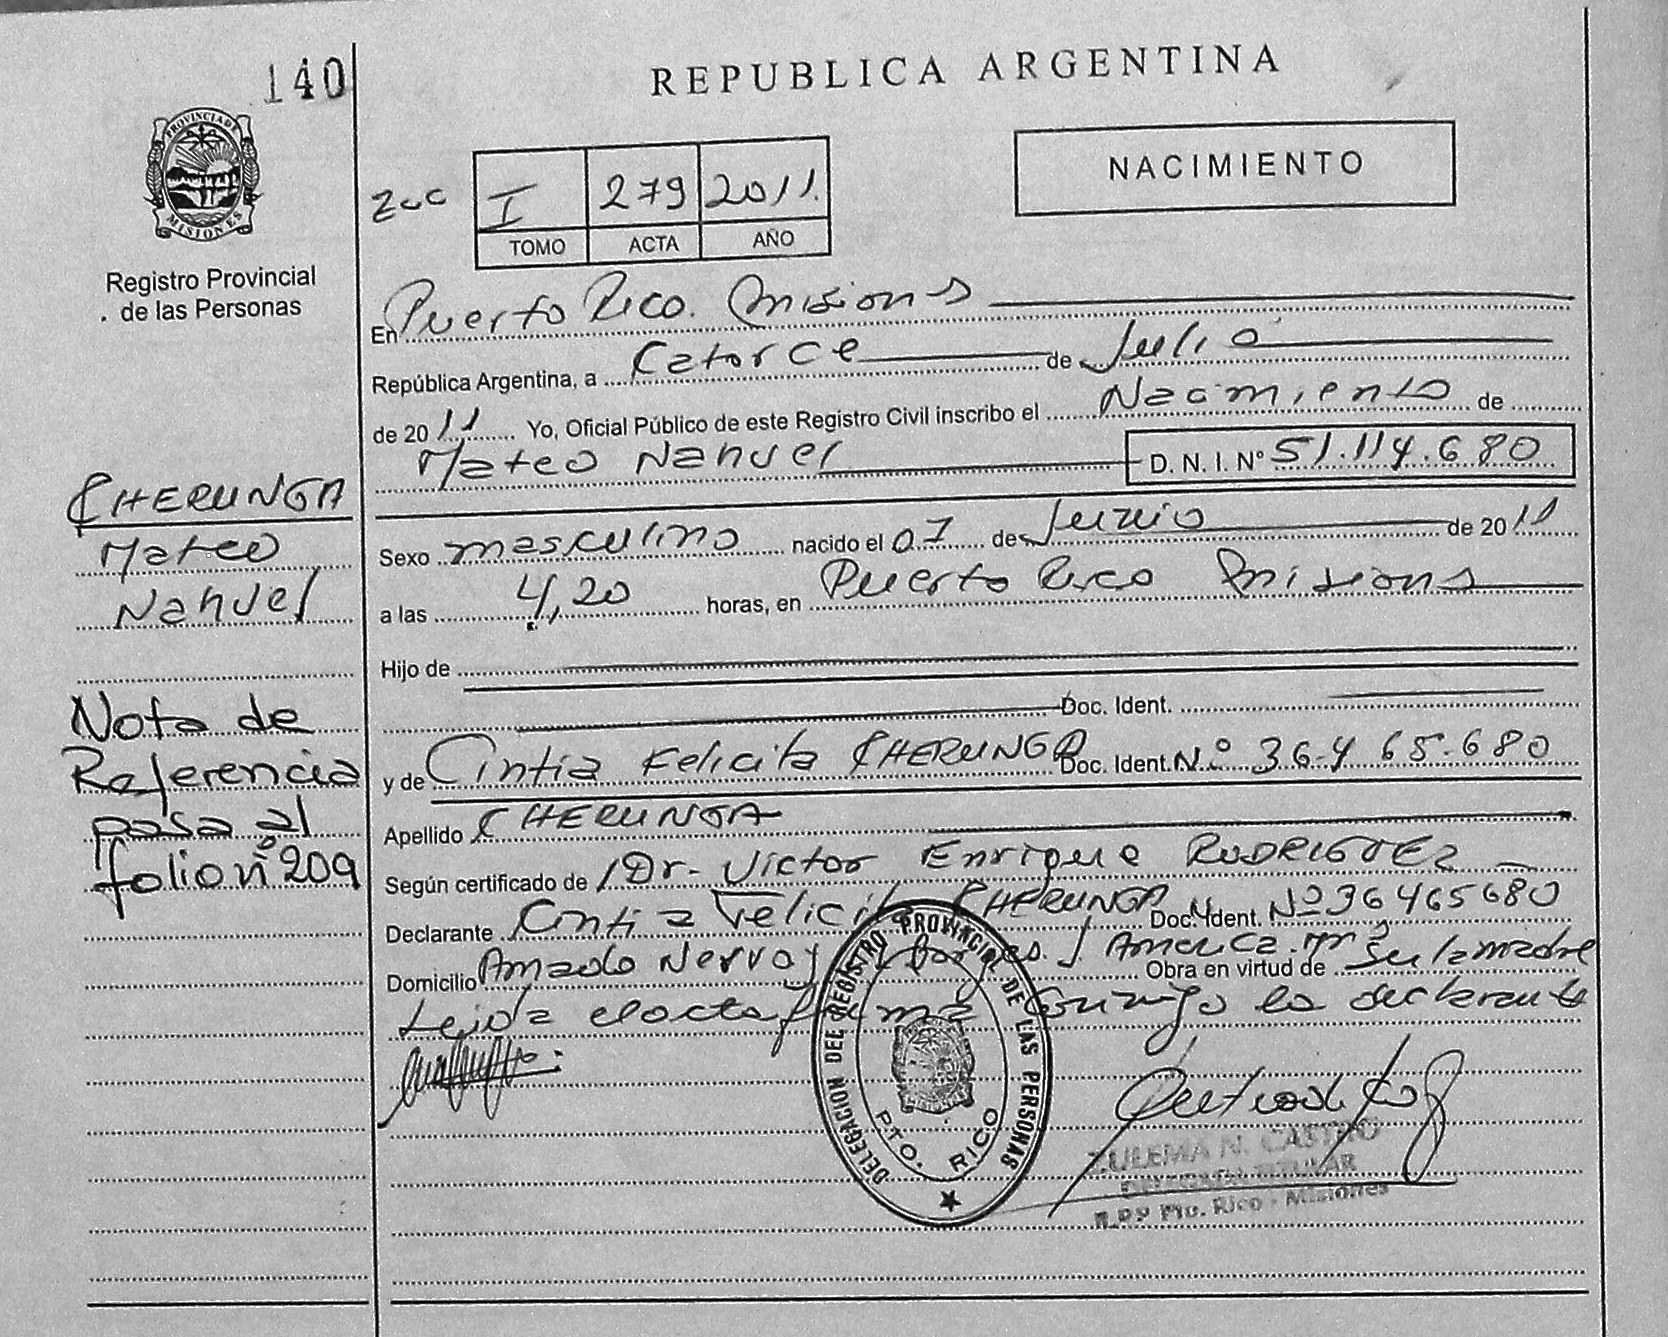 140
REPUBLICA ARGENTINA
PROVINCIA DE MISIONES
Registro Provincial
de las Personas
NACIMIENTO
I 279 2011.
TOMO ACTA AÑO
En Puerto Rico. Misiones
República Argentina, a Catorce de Julio
de 2011 Yo, Oficial Público de este Registro Civil inscribo el Nacimiento de
Mateo Nahuel D. N. I. Nº 51.114.680
CHERUNGA
Mateo
Nahuel
Sexo masculino nacido el 07 de Junio de 2011
a las 4,20 horas, en Puerto Rico Misiones
Hijo de
Doc. Ident.
y de Cintia Felicita CHERUNGA Doc. Ident. Nº 36.465.680
Apellido CHERUNGA
Según certificado de Dr. Victor Enrique RODRIGUEZ
Declarante Cintia Felicita CHERUNGA Doc. Ident. Nº 36465680
Domicilio Amado Nervo y Obra en virtud de Ser la madre
Leida el acta firma conmigo la declarante
Nota de
Referencia
pasa al
folio nº 209
DELEGACION DEL REGISTRO PROVINCIAL DE LAS PERSONAS
PTO. RICO
ZULEMA N. CASTRO
R.P.P Pto. Rico - Misiones